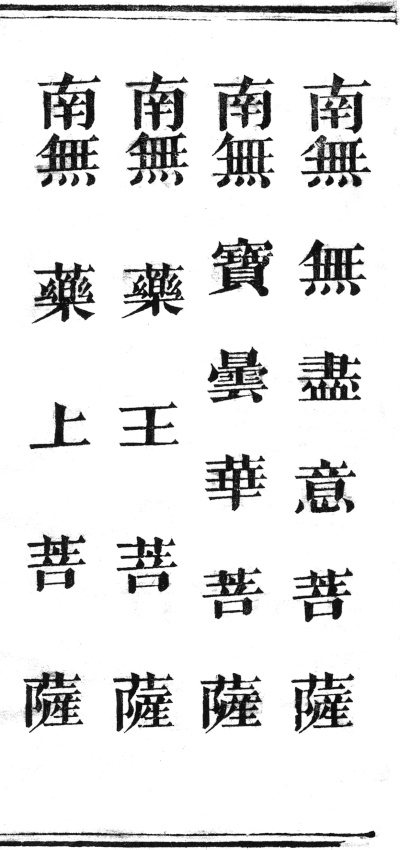 南無無盡意菩薩
南無寶曇華菩薩
南無藥王菩薩
南無藥上菩薩